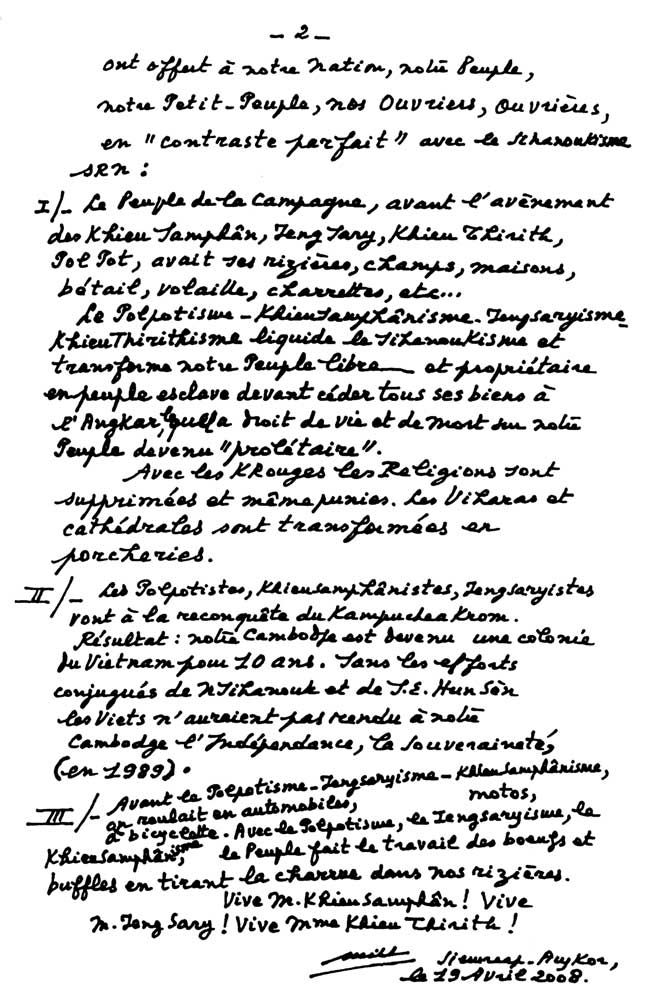 - 2 -
ont offert à notre Nation, notre Peuple,
notre Petit-Peuple, nos Ouvriers, Ouvrières,
en "contraste parfait" avec le Sihanoukisme
SRN :
I/- Le Peuple de la Campagne, avant l'avènement
des Khieu Samphân, Ieng Sary, Khieu Thirith,
Pol Pot, avait ses rizières, champs, maisons,
bétail, volaille, charrettes, etc...
Le Polpotisme - KhieuSamphânisme - Iengsaryisme -
KhieuThirithisme liquide le Sihanoukisme et
transforme notre Peuple libre et propriétaire
en peuple esclave devant céder tous ses biens à
l'Angkar, lequel a droit de vie et de mort sur notre
Peuple devenu "prolétaire".
Avec les KRouges les Religions sont
supprimées et même punies. Les Viharas et
cathédrales sont transformées en
porcheries.
II/- Les Polpotistes, Khieusamphânistes, Iengsaryistes
vont à la reconquête du Kampuchea Krom.
Résultat : notre Cambodge est devenu une colonie
du Vietnam pour 10 ans. Sans les efforts
conjugués de N Sihanouk et de S.E. Hun Sèn
les Viets n'auraient pas rendu à notre
Cambodge l'Indépendance, la Souveraineté,
(en 1989).
III/- Avant le Polpotisme - Iengsaryisme - Khieusamphânisme,
on roulait en automobiles, motos,
à bicyclette. Avec le Polpotisme, le Iengsaryisme, le
KhieuSamphânisme, le Peuple fait le travail des boeufs et
buffles en tirant la charrue dans nos rizières.
Vive M. Khieu Samphân ! Vive
M. Ieng Sary ! Vive Mme Khieu Thirith !
Siemreap-Angkor,
le 19 Avril 2008.